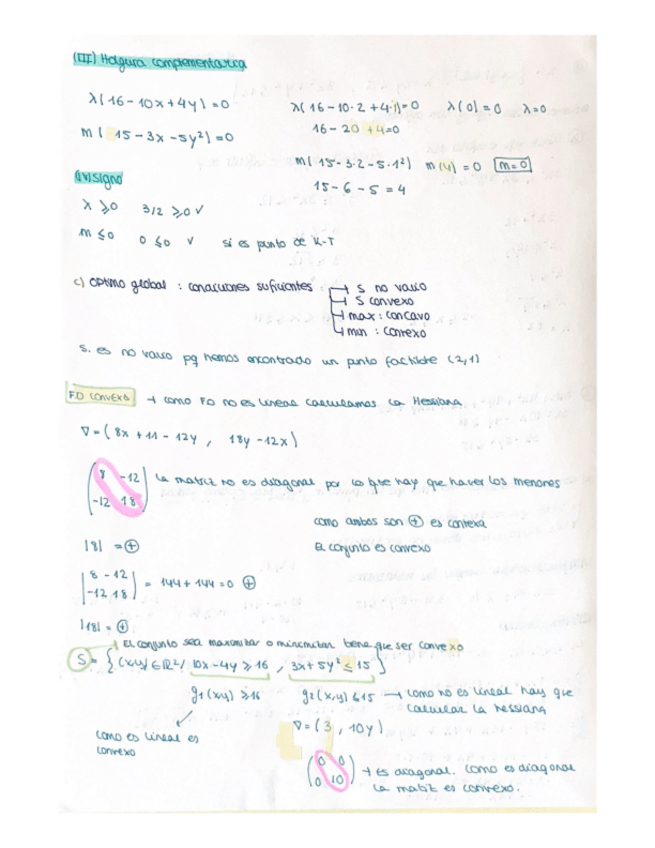 (III) Holgura complementaria
λ(16-10x+4y)=0
λ(16-10·2+4·1)=0 λ(0)=0 λ=0
16-20+4=0
m( 15-3x-5y²)=0
m(15-3·2-5·1²) m(4)=0 m=0
15-6-5=4
IV) Signo
λ ≥0 3/2 ≥0 ✓
m ≤0 0 ≤0 ✓ sí es punto de K-T
c) óptimo global : condiciones suficientes → S no vacío
→ S convexo
→ max: cóncavo
→ min : convexo
S. es no vacío pq hemos encontrado un punto factible (2,1)
F.O convexa → como FO no es lineal calculamos la Hessiana
∇=(8x+11-12y , 18y-12x)
( 8 -12
-12 18 ) La matriz no es diagonal por lo que hay que hacer los menores
como ambos son ⊕ es convexa
|8| = ⊕ El conjunto es convexo
| 8 -12
-12 18 | = 144+144=0 ⊕
|18| = ⊕
El conjunto sea maximizar o minimizar tiene que ser convexo
S = { (x,y) ∈ ℝ² / 10x-4y ≥ 16 , 3x+5y² ≤ 15 }
g1(x,y) ≥16 g2(x,y) ≤15 → como no es lineal hay que
calcular la hessiana
∇=(3, 10y)
como es lineal es
convexo
( 0 0
0 10 ) → es diagonal. Como es diagonal
la matriz es convexo.